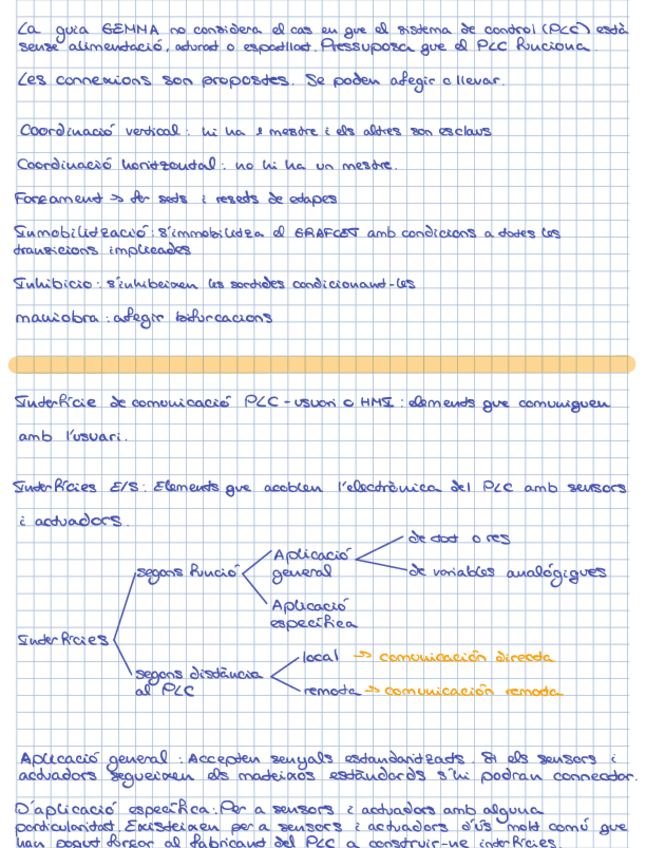 La guia GEMMA no considera el cas en que el sistema de control (PLC) està
sense alimentació, aturat o espatllat. Pressuposa que el PLC funciona.
Les connexions son propostes. Se poden afegir o llevar.
Coordinació vertical: hi ha 1 mestre i els altres son esclaus
Coordinació horitzontal: no hi ha un mestre.
Forçament -> fer sets i resets de etapes
Immobilització: s'immobilitza el GRAFCET amb condicions a totes les
transicions implicades
Inhibicio: s'inhibeixen les sortides condicionant-les
maniobra: afegir bifurcacions
Interfície de comunicació PLC-usuari o HMI: elements que comuniquen
amb l'usuari.
Interfícies E/S: Elements que acoblen l'electrònica del PLC amb sensors
i actuadors.
de tot o res
Aplicació
general
segons funció
de variables analógiques
Aplicació
específica
Interfícies
local -> comunicación directa
segons distància
al PLC
remota -> comunicación remota
Aplicació general: Accepten senyals estandaritzats. Si els sensors i
actuadors segueixen els mateixos estàndards s'hi podran connectar.
D'aplicació específica: Per a sensors i actuadors amb alguna
particularitat. Existeixen per a sensors i actuadors d'ús molt comú que
han pogut forçar al fabricant del PLC a construir-ne interfícies.